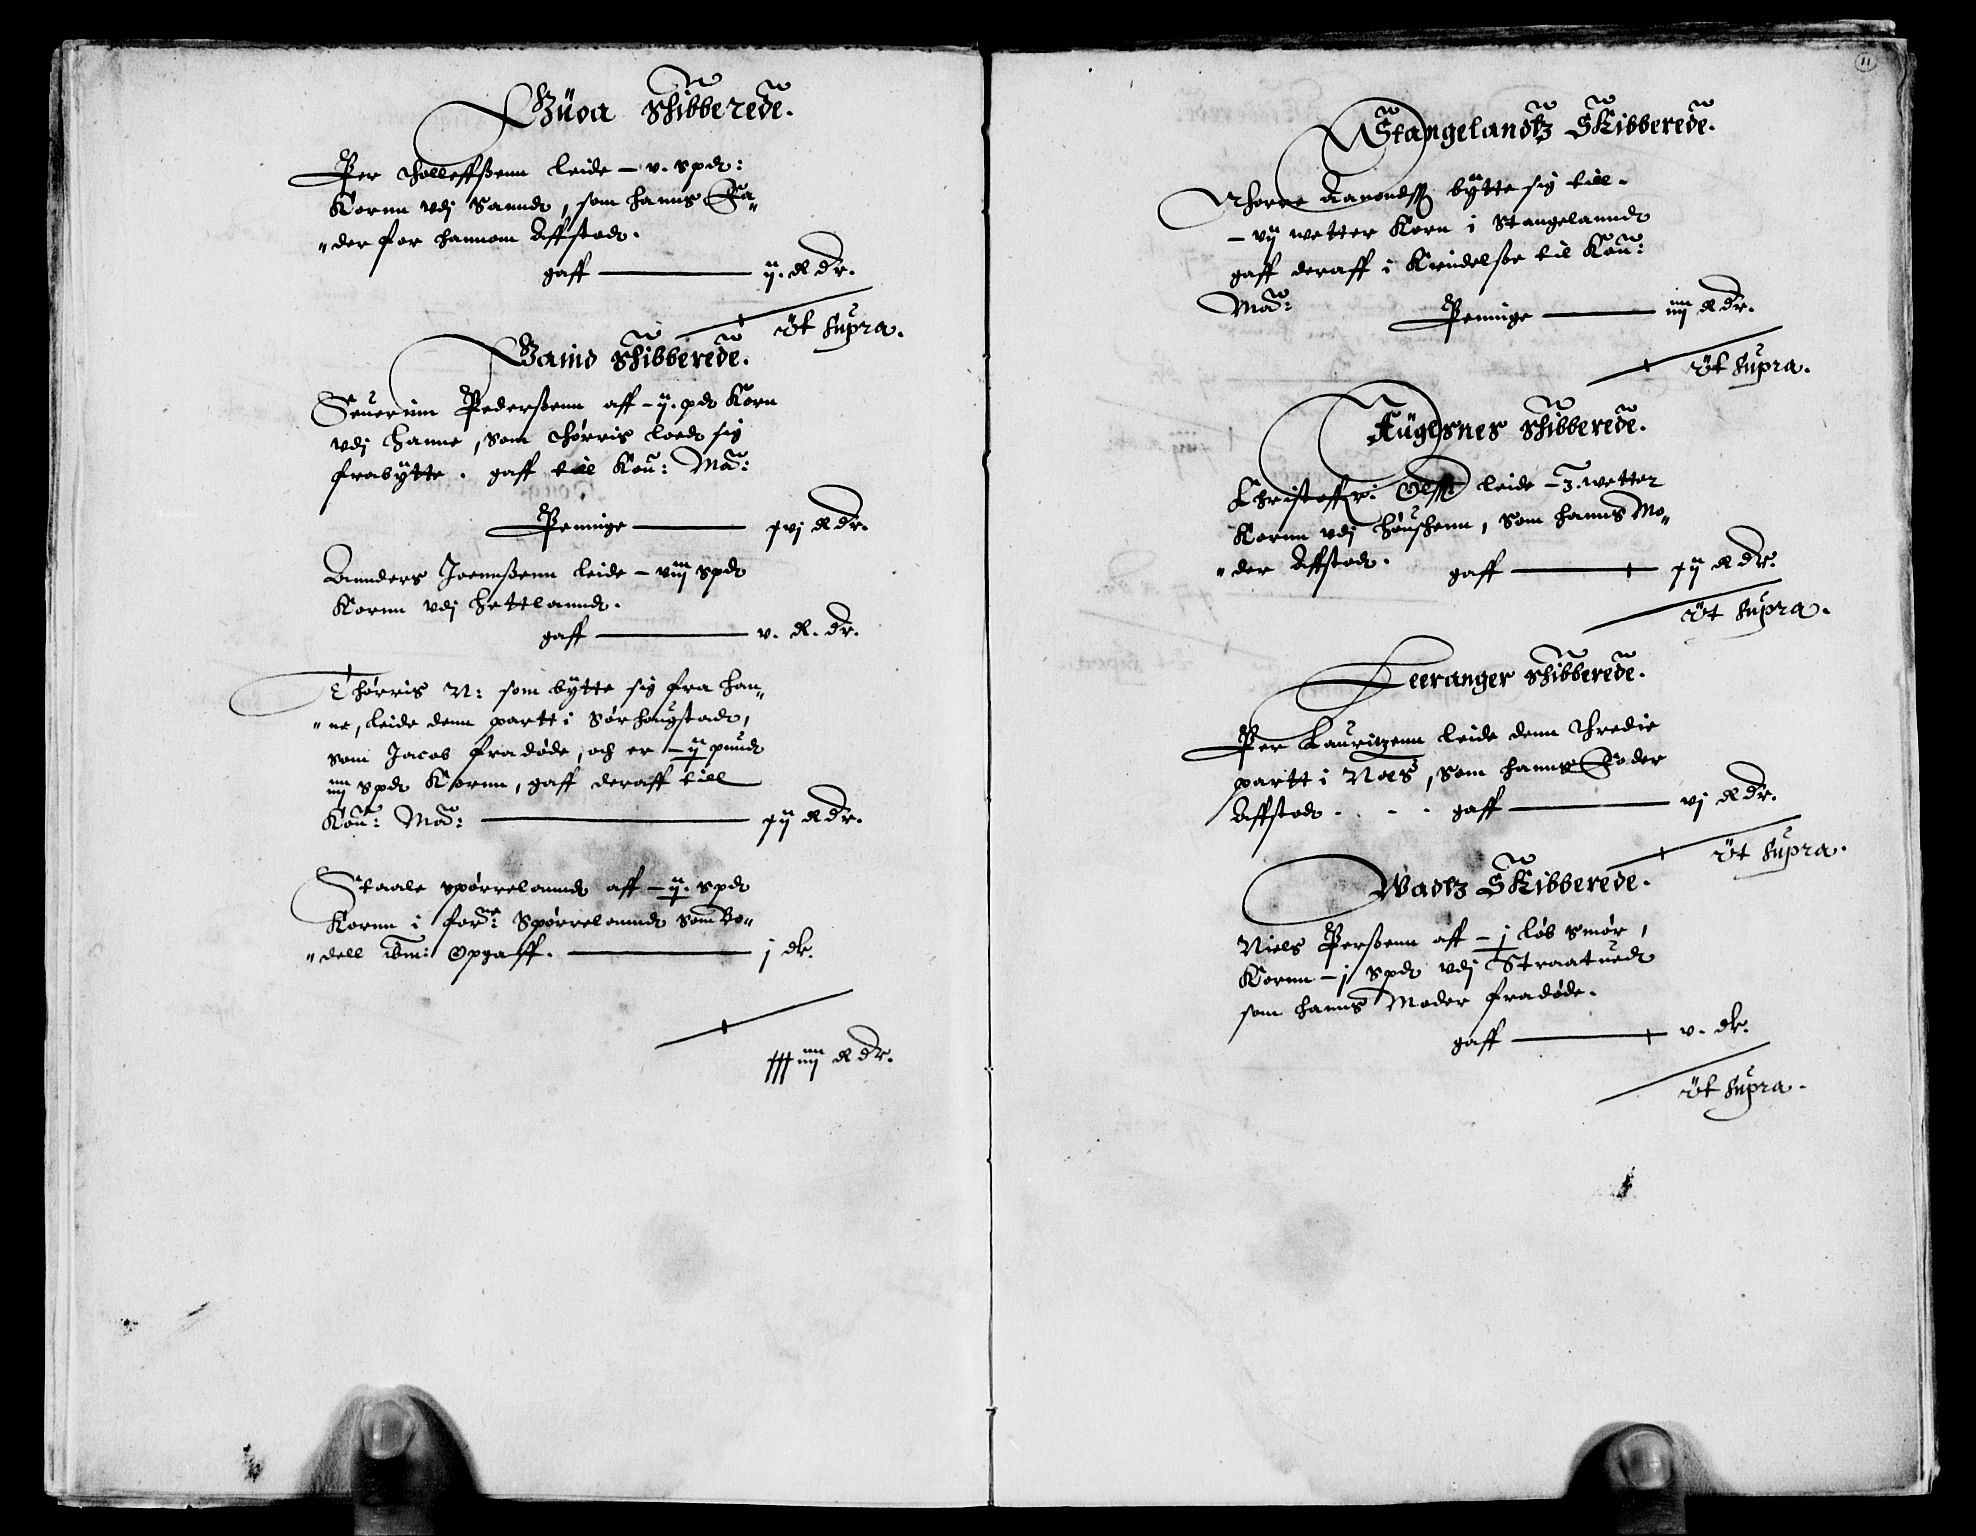 Büoa Skibberede.
Per Tholleffßenn leide – v. spd:
Kornn vdj Sannd, som hanns Fa„
„der for hannom Affstod.
gaff — ij. R dr.
Ut Supra.
Skibberede.
Seuerinn Pederßenn aff – ij. pd Korn
vdj Hanne, som Thørris loed sig
frabytte. gaff till Kon: Ma:
Penninge — xvj R dr.
Annders Joennßenn leide – viij spd
Kornn vdj Hettlannd.
gaff — v. R. dr.
Thørris N: som bytte sig fra Han„
„ne, leide denn partt i Sørhougstad,
som Jacob fradøde, och er – ij pund
iiij spd Kornn, gaff deraff till
Kon: Ma: — xij R dr.
Staale Spørrelannd aff – ij. spd
Kornn i for: Spørrelannd som Bo„
„dell ibm: Opgaff. — j dr.
xxxiiij R dr.
11
Stangelandtz Skibberede.
Thorre Aanondß bytte sig till.
– vij wetter Korn i Stangelannd
gaff deraff i Kiendelße til Kon:
Ma: Penninge — iiij R dr.
Ut Supra.
Augesnes Skibberede.
Christoffer: Olß: leide – 3. wetter
Kornn vdj Houshenn, som hanns Mo„
„der Affstod. gaff — xij R dr.
Ut Supra.
Leeranger Skibberede.
Per Lauritzenn leide denn Thredie
partt i Noes, som hanns Foder
Affstod. gaff — vj R dr.
Ut Supra.
Wadtz Skibberede.
Niels Perßenn aff – j løb Smør,
Kornn – j spd vdj Straatued
som hanns Moder fradøde.
gaff — v. dr.
Ut Supra.